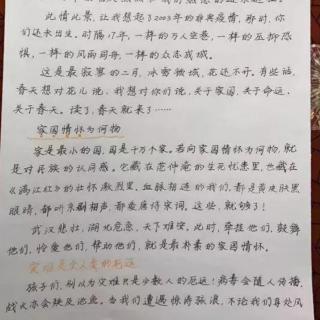 此情此景,让我想起了2003年的非典疫情,那时,你
们还未出生。时隔17年,一样的万人空巷,一样的恐
惧,一样的风雨同舟,一样的众志成城。
这是最寂寥的二月,冰雪微城,花迟不开。有些话,
春天想对花儿说,我想对你们说,关于家国、关于命运、
关于春天。读了,春天就来了……
家国情怀为何物
家是最小的国,国是千万个家。若问家国情怀为何物,就
是对民族的认同感。它藏在范仲淹的生死忧患里,也藏在
《满江红》的壮怀激烈里。血脉相连的我们,都是黄皮肤黑
眼睛,都听京剧相声,都爱唐诗宋词。这些,就够了!
武汉悲壮,湖北危急,天下难安。此时,牵挂他们,鼓舞
他们,怜爱他们,帮助他们,就是最朴素的家国情怀。
灾难是全人类的厄运
孩子们,别以为灾难只是少数人的厄运!病毒会随人传播,
战火亦会殃及池鱼。当我们遭遇惊涛骇浪,不论我们身处风